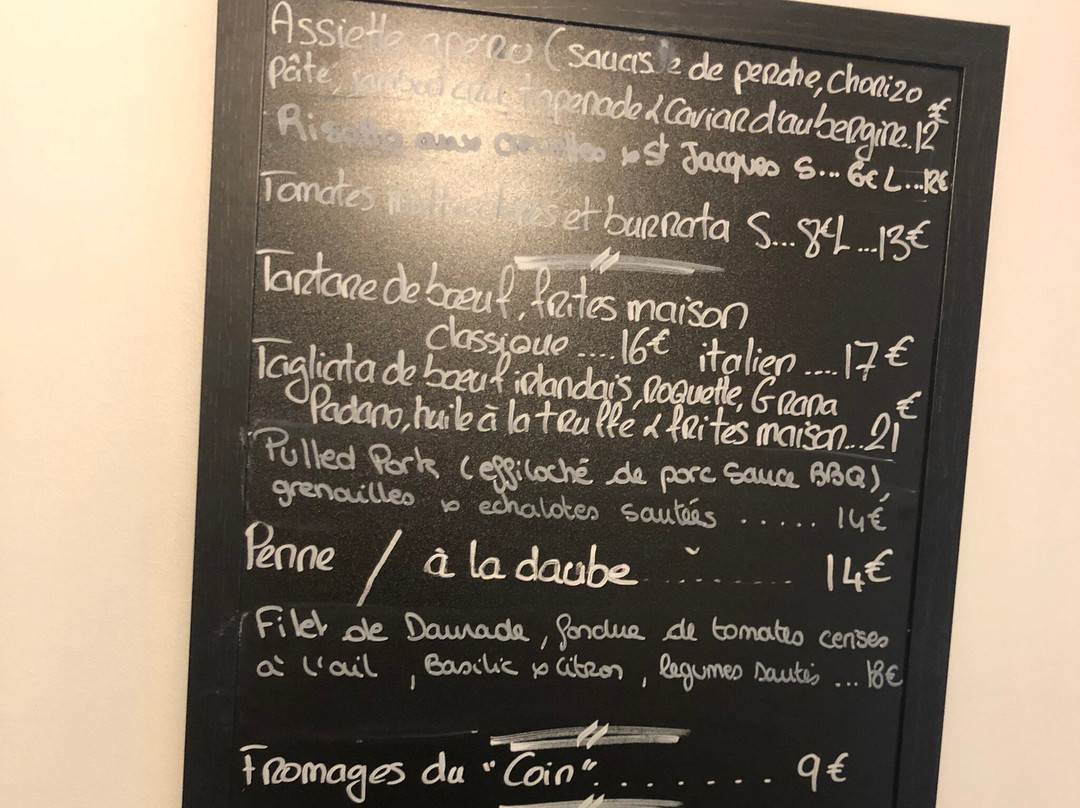 Assiette apéro (saucisse de perche, Chorizo
pâte, tapenade & Caviar d'aubergine..12€
Risotto aux & St Jacques S... 6€ L...12€
Tomates et burrata S...8€ L...13€
Tartare de bœuf, frites maison
classique ....16€ italien ....17€
Tagliata de bœuf irlandais, roquette, Grana
Padano, huile à la truffe & frites maison...21€
Pulled Pork (effiloché de porc sauce BBQ),
grenailles & echalotes sautées ..... 14€
Penne / à la daube ............ 14€
Filet de Daurade, fondue de tomates cerises
à l'ail, Basilic & Citron, legumes sautés ... 18€
Fromages du "Coin" ....... 9€